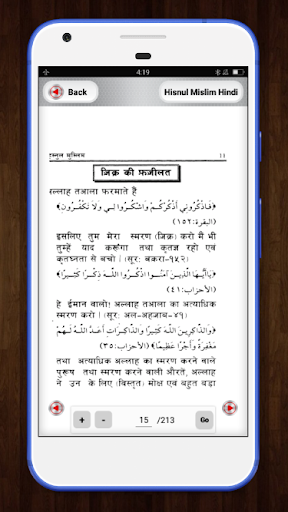 4:19
Back
Hisnul Mislim Hindi
हिस्नुल मुस्लिम 11
जिक्र की फजीलत
अल्लाह तआला फरमाते हैं
﴿فَاذْكُرُونِي أَذْكُرْكُمْ وَاشْكُرُوا لِي وَلَا تَكْفُرُونِ﴾
(البقرة:١٥٢)
इसलिए तुम मेरा स्मरण (जिक्र) करो मैं भी
तुम्हें याद करूँगा तथा कृतज्ञ रहो एवं
कृतघ्नता से बचो । (सूर: बकरा-१५२)
﴿يَا أَيُّهَا الَّذِينَ آمَنُوا اذْكُرُوا اللَّهَ ذِكْرًا كَثِيرًا﴾
(الأحزاب:٤١)
हे ईमान वालो! अल्लाह तआला का अत्याधिक
स्मरण करो । (सूर: अल-अहजाब-४१)
﴿وَالذَّاكِرِينَ اللَّهَ كَثِيرًا وَالذَّاكِرَاتِ أَعَدَّ اللَّهُ لَهُمْ
مَغْفِرَةً وَأَجْرًا عَظِيمًا﴾ (الأحزاب:٣٥)
तथा अत्याधिक अल्लाह का स्मरण करने वाले
पुरूष तथा स्मरण करने वाली औरतें, अल्लाह
ने उन के लिए (विस्तृत) मोक्ष एवं बहुत बड़ा
+ - 15 /213 Go